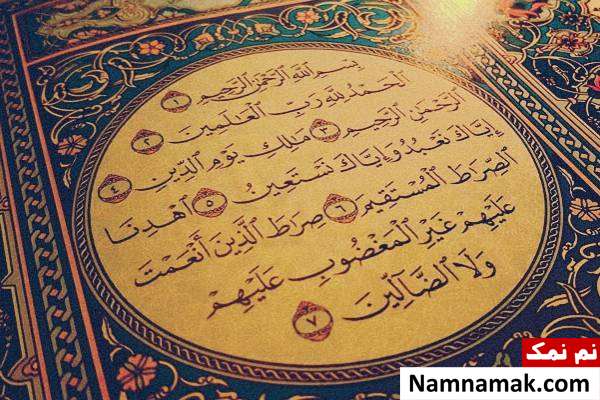 بِسْمِ ٱللَّهِ ٱلرَّحْمَٰنِ ٱلرَّحِيمِ ١
ٱلْحَمْدُ لِلَّهِ رَبِّ ٱلْعَٰلَمِينَ ٢
ٱلرَّحْمَٰنِ ٱلرَّحِيمِ ٣ مَٰلِكِ يَوْمِ ٱلدِّينِ ٤
إِيَّاكَ نَعْبُدُ وَإِيَّاكَ نَسْتَعِينُ ٥ ٱهْدِنَا
ٱلصِّرَٰطَ ٱلْمُسْتَقِيمَ ٦ صِرَٰطَ ٱلَّذِينَ أَنْعَمْتَ
عَلَيْهِمْ غَيْرِ ٱلْمَغْضُوبِ عَلَيْهِمْ
وَلَا ٱلضَّآلِّينَ ٧
نم نمک
Namnamak.com